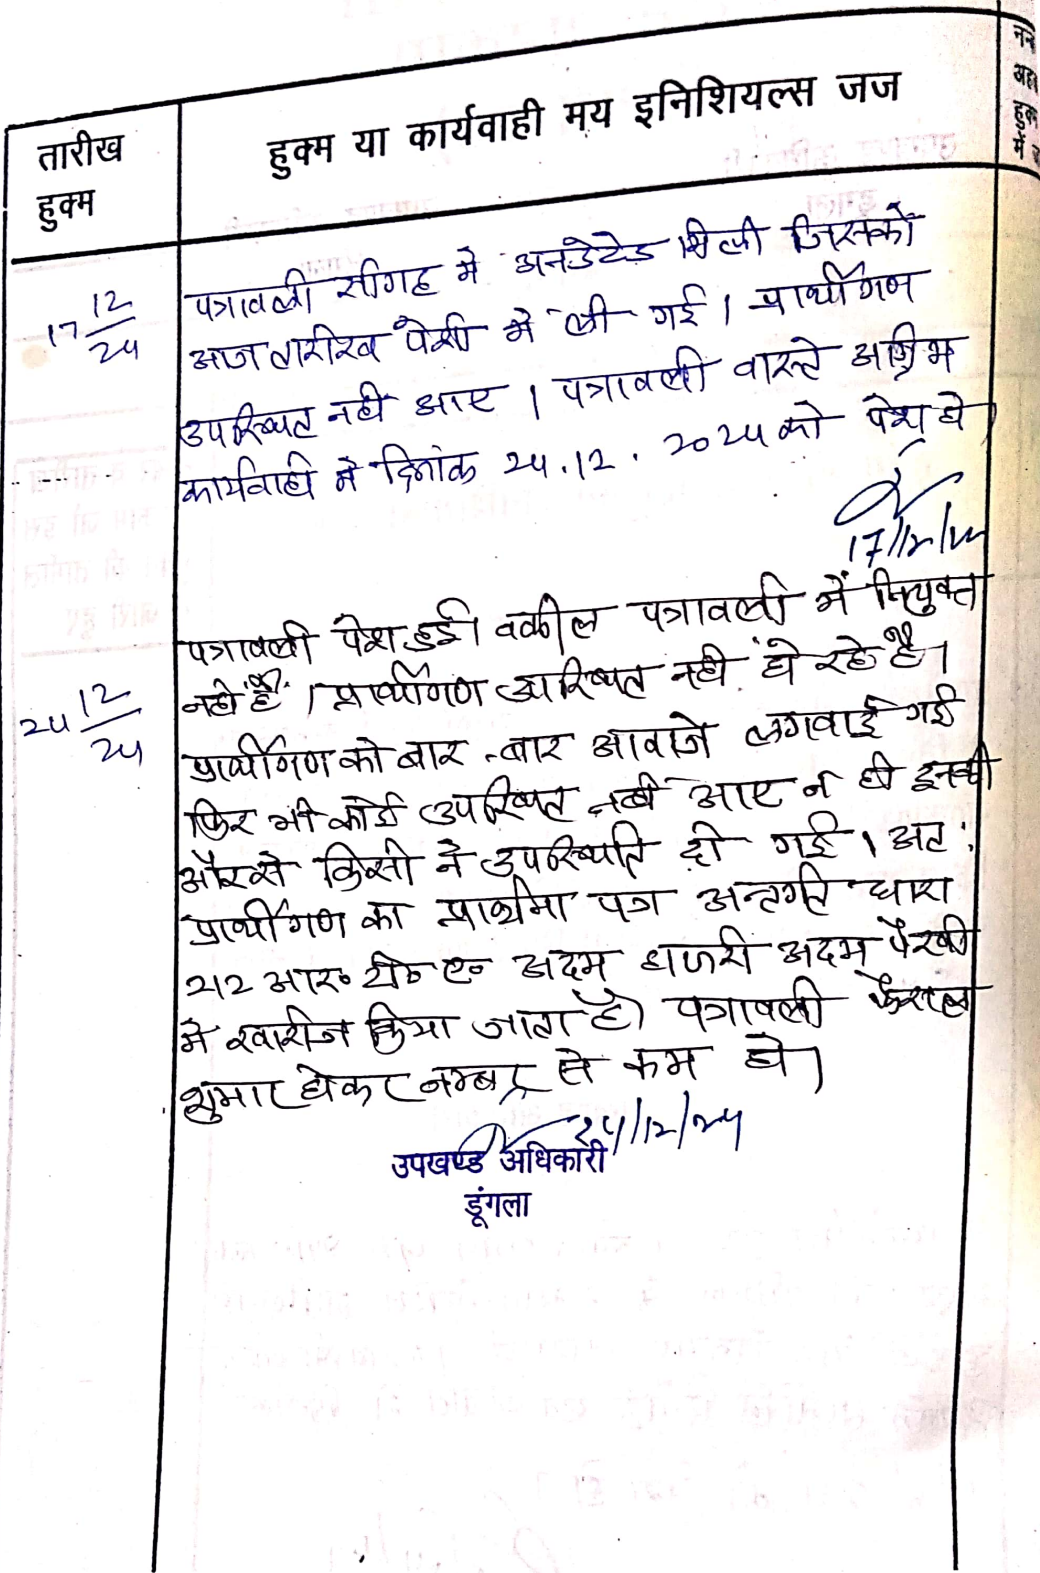 तारीख
हुक्म
हुक्म या कार्यवाही मय इनिशियल्स जज
नम
अहा
हुक्म
में
17 12/24
पत्रावली सीगह में अनडेटेड मिली जिसको
आज तारीख पेशी में ली गई। प्रार्थीगण
उपस्थित नहीं आए। पत्रावली वास्ते अग्रिम
कार्यवाही में दिनांक 24.12.2024 को पेश हो।
17/12/24
24 12/24
पत्रावली पेश हुई। वकील पत्रावली में नियुक्त
नहीं है। प्रार्थीगण उपस्थित नहीं हो रहे है।
प्रार्थीगण को बार-बार आवाजे लगवाई गई
फिर भी कोई उपस्थित नहीं आए न ही इनकी
औरसे किसी ने उपस्थिति दी गई। अतः
प्रार्थीगण का प्रार्थना पत्र अन्तर्गत धारा
212 आर० टी० ए० अदम हाजरी अदम पैरवी
में खारीज किया जाता है। पत्रावली फैसल
शुमार होकर नम्बर से कम हो।
24/12/24
उपखण्ड अधिकारी
डूंगला